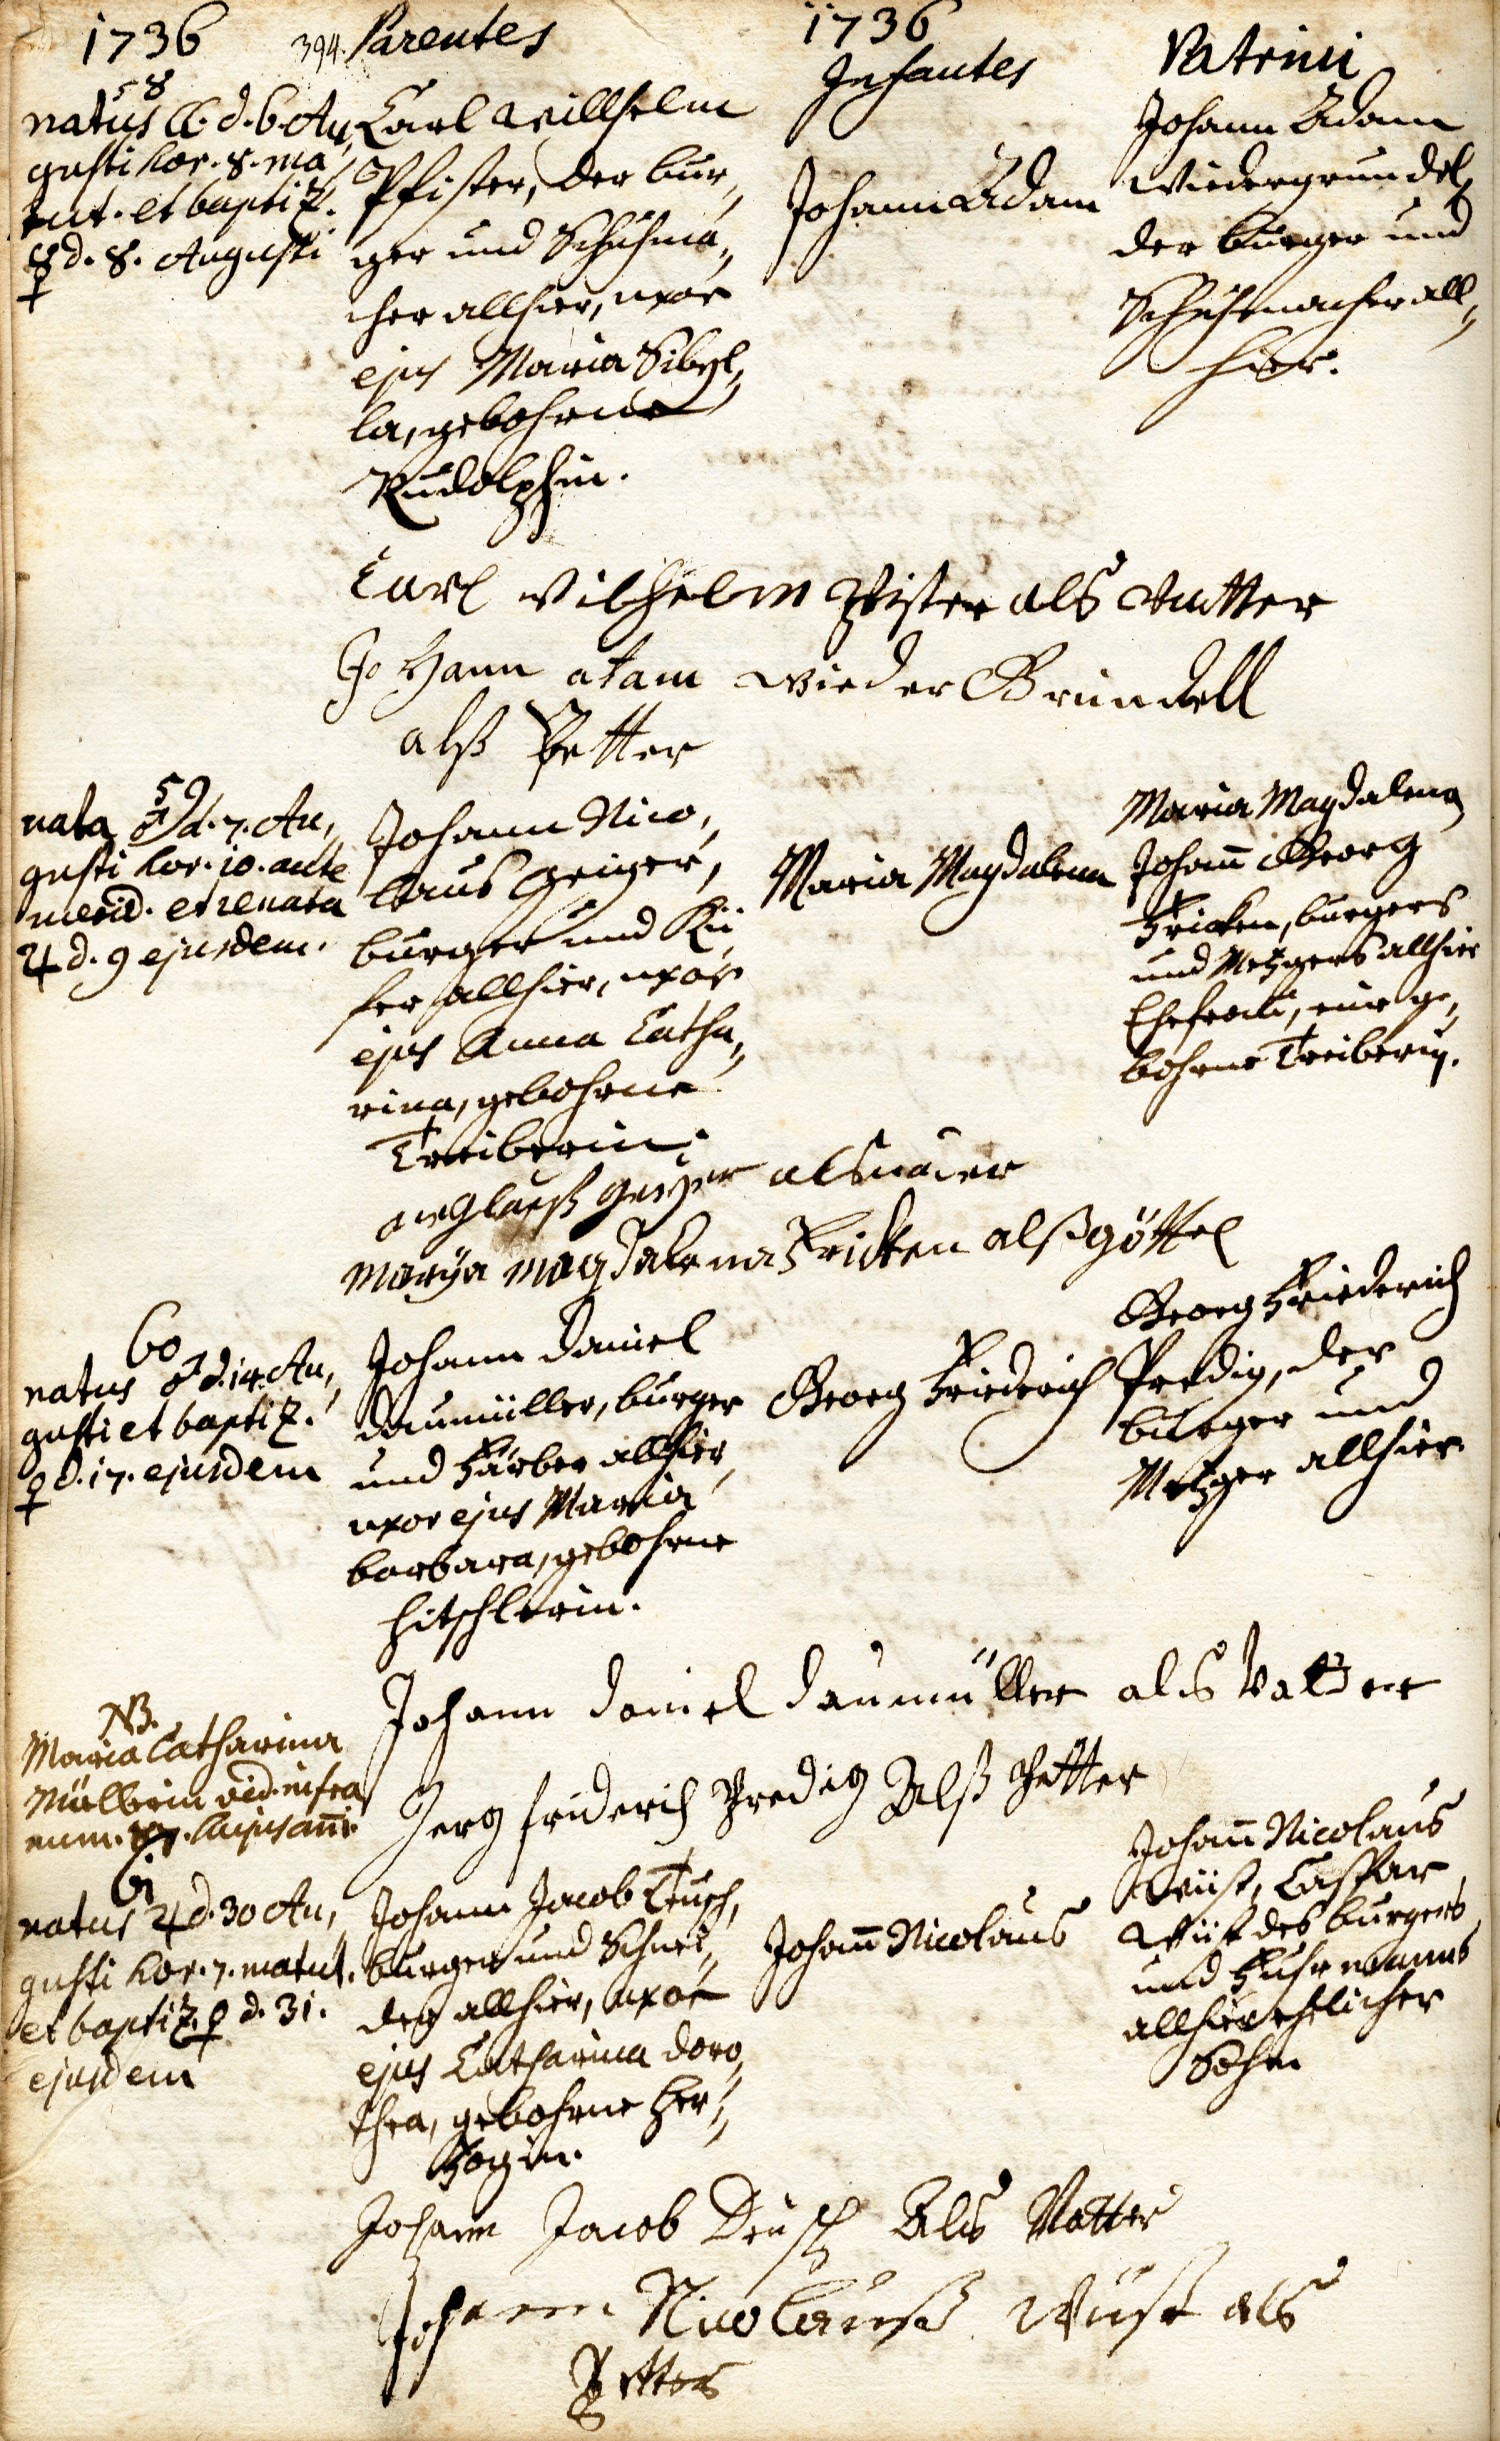 1736
394. Parentes
1736
Infantes
Patrini
58
natus ☾. d. 6. Au„
gusti hor. 8. ma„
tut. et baptiz.
☿ d. 8. Augusti
Carl Willhelm
Pfister, der bur„
ger und Schuhma„
cher allhier, uxor
ejus Maria Sibyl„
la, gebohrne
Rudolphin.
Johann Adam
Johann Adam
Wiedergrundel,
der burger und
Schuhmacher all„
hier.
Carl Vilhelm Pfister als Vatter
Johann atam wieder Grundell
alß Petter
59
nata ♂ d. 7. Au„
gusti hor. 10. ante
merid. et renata
♃ d. 9 ejusdem.
Johann Nico„
laus Geiger,
burger und Kü„
fer allhier, uxor
ejus Anna Catha„
rina, gebohrne
Treiberin.
Maria Magdalena
Maria Magdalena,
Johann Georg
Fricken, burgers
und Metzgers allhier
Ehefrau, eine ge„
bohrne Treiberin.
geiger als
Marÿa magdalena Fricken alß göttel
60
natus ♂ d. 14. Au„
gusti et baptiz.
♀ d. 17. ejusdem
Johann Daniel
Daumüller, burger
und Färber allhier,
uxor ejus Maria
barbara, gebohrne
Hitschlerin.
Georg Friederich
Georg Friederich
Predig, der
burger und
Metzger allhier
Johann Daniel Daumüller als Vatter
Jerg friderich Predig Alß Petter
NB.
Maria Catharina
Müllerin vid. infra
num. hujus anni
61
natus ♃ d. 30 Au„
gusti hor. 7. matut.
et baptiz. ♀ d. 31.
ejusdem
Johann Jacob Teusch,
burger und Schnei„
der allhier, uxor
ejus Catharina Doro„
thea, gebohrne Her„
zogin.
Johann Nicolaus
Johann Nicolaus
Wüst, Caspar
Wüst des burgers
und Fuhrmanns
allhier ehelicher
Sohn
Johann Jacob Deusch Als Vatter
Johann Nicolauß Wüst als
Petter